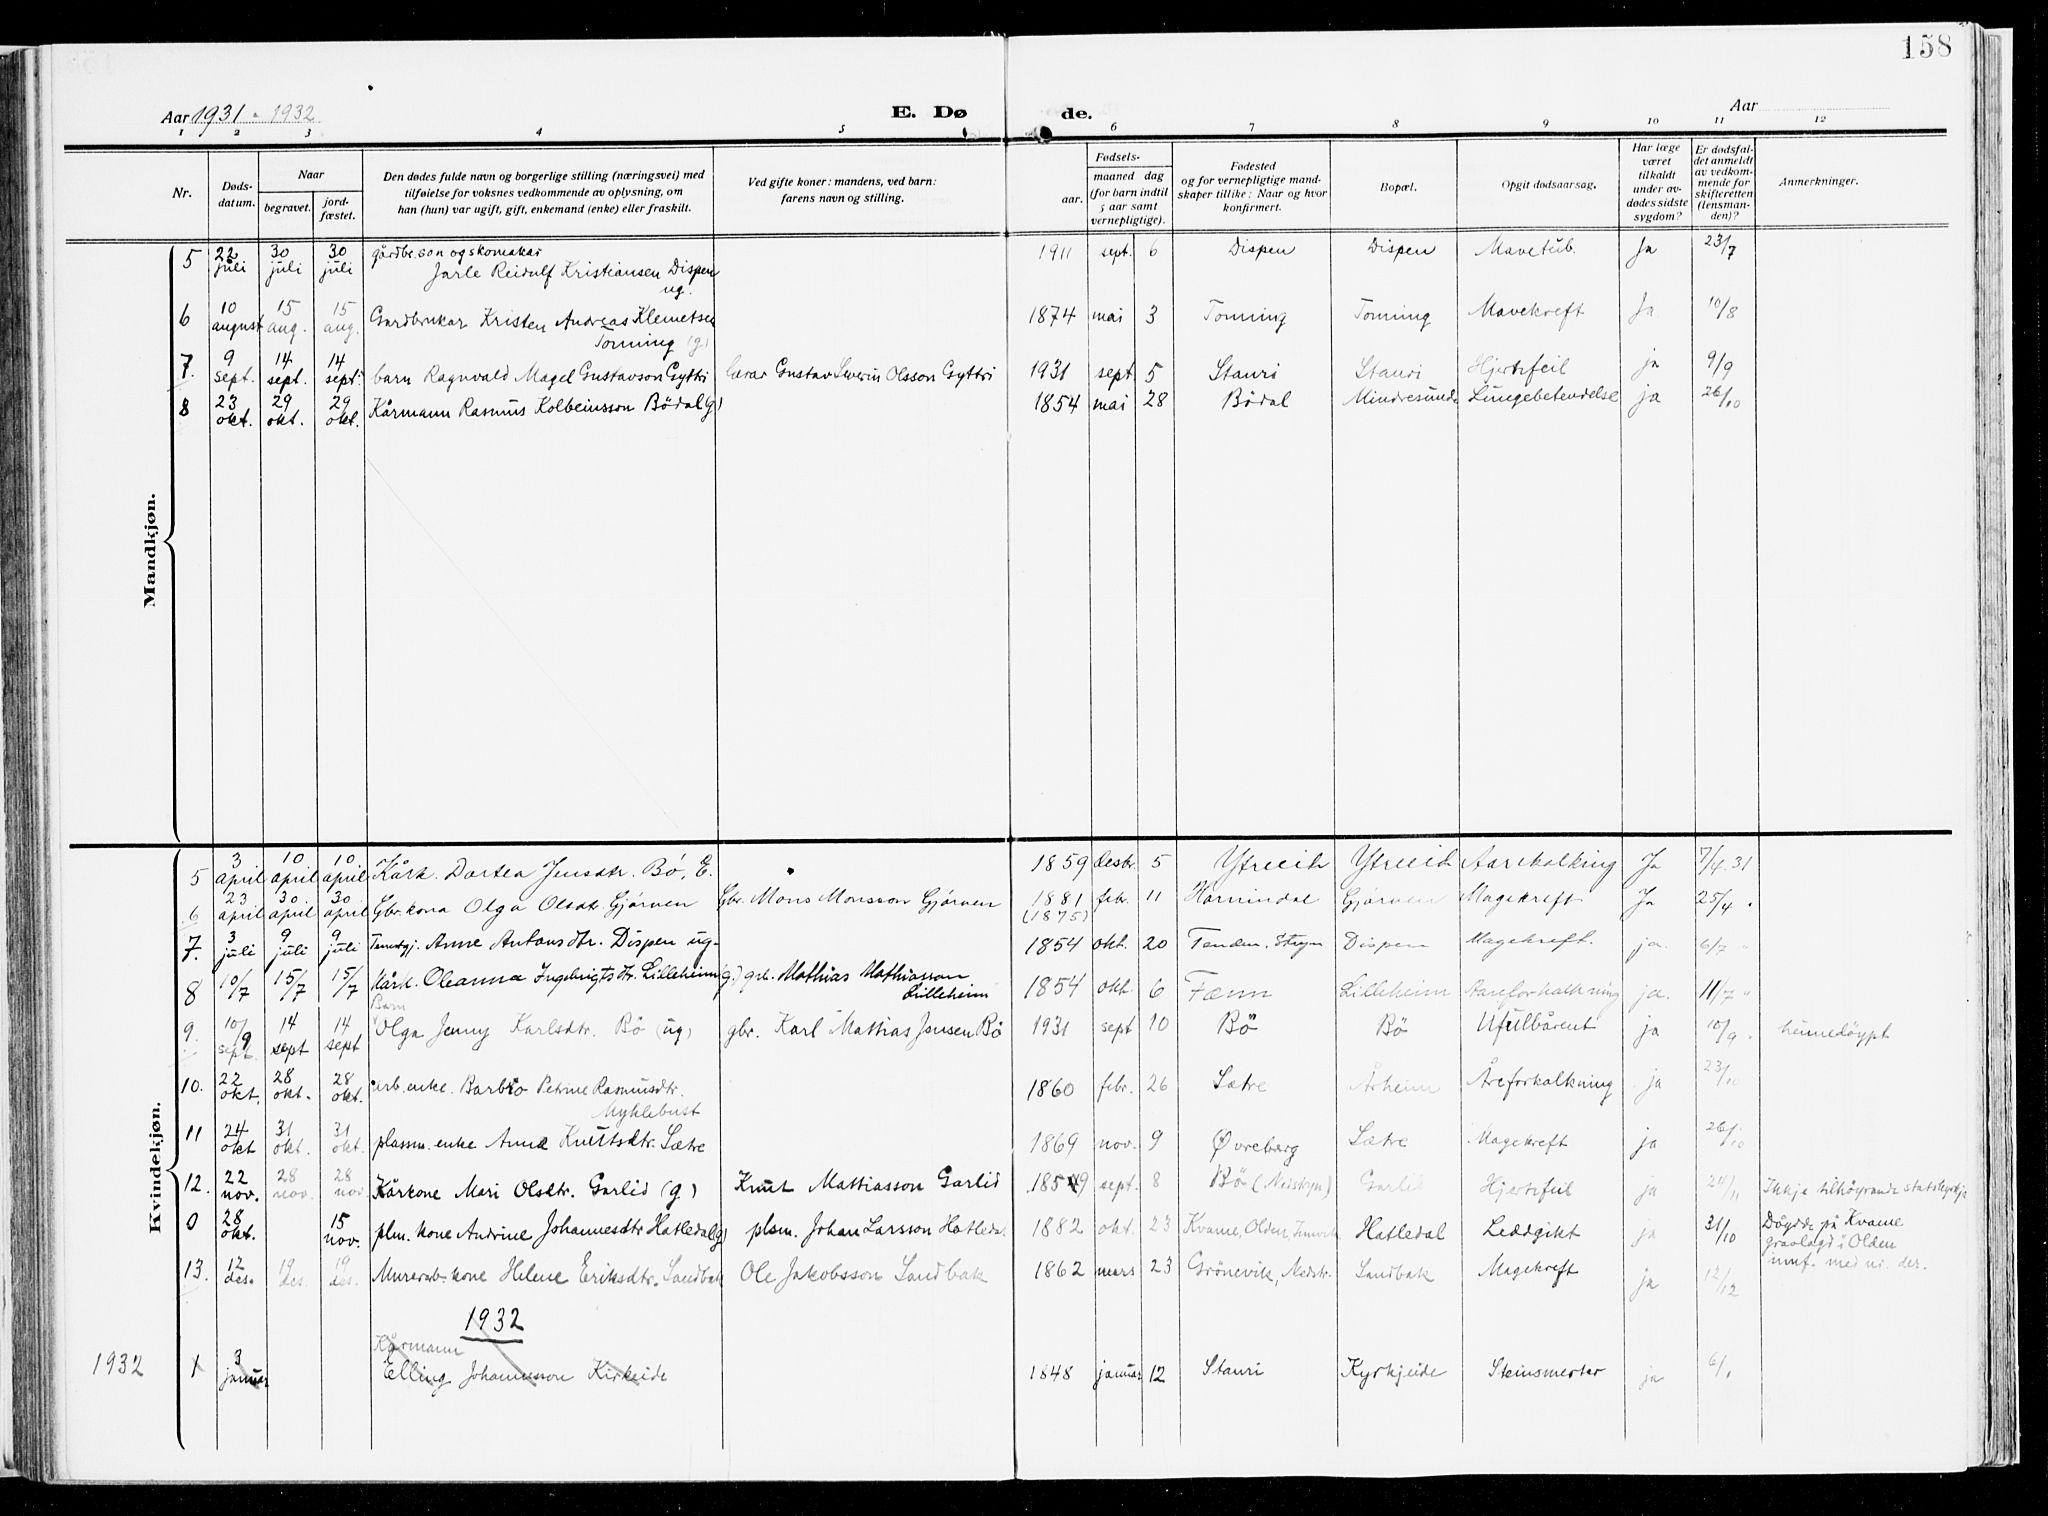 158
Aar 1931 - 1932
E. Dø
de.
Aar
1 2 3 4 5 6 7 8 9 10 11 12
Nr.
Døds-
datum.
Naar
begravet.
jord-
fæstet.
Den dødes fulde navn og borgerlige stilling (næringsvei) med
tilføielse for voksnes vedkommende av oplysning, om
han (hun) var ugift, gift, enkemand (enke) eller fraskilt.
Ved gifte koner: mandens, ved barn:
farens navn og stilling.
Fødsels-
aar.
maaned dag
(for barn indtil
5 aar samt
vernepligtige).
Fødested
og for vernepligtige mand-
skaper tillike: Naar og hvor
konfirmert.
Bopæl.
Opgit dødsaarsag.
Har læge
været
tilkaldt
under av-
dødes sidste
sygdom?
Er dødsfal-
det anmeldt
av vedkom-
mende for
skifteretten
(lensman-
den)?
Anmerkninger.
Mandkjøn.
5 22 juli 30 juli 30 juli gårdbr. son og skomakar
Jarle Reidulf Kristiansen Dispen
ug.
1911 sept. 6 Dispen Dispen Mavetub. Ja 23/7
6 10 august 15 aug. 15 aug. Gardbrukar Kristen Andreas Klemetsen
Tonning (g)
1874 mai 3 Tonning Tonning Mavekreft Ja 10/8
7. 9 sept. 14 sept. 14 sept. barn Ragnvald Magel Gustavson Gyttri lærar Gustav Severin Olsson Gyttri 1931 sept 5 Stauri Stauri Hjertefeil ja 9/9
8 23 okt. 29 okt. 29 okt. Kårmann Rasmus Kolbeinsson Bödal (g) 1854 mai 28 Bödal Mindresunde Lungebetendelse ja 26/10
Kvindekjøn.
5 3 april 10 april 10 april Kårk. Dortea Jensdtr. Bö, E. 1859 desbr. 5 Ytreeih Ytreeih Aarekalking Ja 7/4.31
6 23 april 30. april 30 april Gbr. kona Olga Olsdtr. Gjörven Gbr. Mons Monsson Gjörven 1881 febr. 11 Hornindal Gjörven Magekreft Ja 25/4 "
(1875)
7. 3 juli 9 juli 9 juli Tenestgj. Anne Antonsdtr. Dispen ug. 1854 okt. 20 Tenden, Stryn Dispen Magekreft. ja. 6/7 "
8 10/7 15/7 15/7 Kårk. Oleanna Ingebrigtsdtr. Lilleheim (g.) gbr. Mathias Mathiasson
Lilleheim
1854 okt. 6 Fænn Lilleheim Aareforkalkning ja. 11/7 "
Barn
9. 10/9 sept. 14 sept 14 sept Olga Jenny Karlsdtr. Bö (ug) gbr. Karl Mattias Jensen Bö 1931 sept 10 Bö Bö Ufullbårent ja 10/9 " heimedöypt
10. 22 okt. 28 okt. 28 okt. arb. enke. Barbro Petrine Rasmusdtr.
Myklebust
1860 febr. 26 Sætre Årheim Åreforkalkning ja 23/10
11 24 okt 31 okt. 31 okt. plassm. enke Anne Knutsdtr. Sætre 1869 nov. 9 Øvreberg Sætre Magekreft ja 26/10
12. 22 nov. 28 nov. 28 nov. Kårkone Mari Olsdtr. Garlid (g.) Knut Mattiasson Garlid 1859 sept. 8 Bö (Nedstryn) Garlid Hjertefeil ja 24/11 Ikkje tilhöyrande statskyrkja
0 28 okt. 15 nov. plm. kone Andrine Johannesdtr Hatledal (g) plsm. Johan Larsson Hatledal 1882 okt. 23 Kvame, Olden, Hatledal Leddgikt ja 31/10 Döydde på Kvame
gravlagd i Olden
innf. med nr. der.
13. 12 des. 19 des. 19 des. Murerarb. kone Helene Eriksdtr. Sandbak Ole Jakobsson Sandbak 1862 mars 23 Grönevik, Nedstr. Sandbak Magekreft ja 12/12
1932
Kårmann
1932 1 3 januar Elling Johannesson Kirkeide 1848 januar 12 Stauri Kyrkjeide Steinsmerter ja 6/1